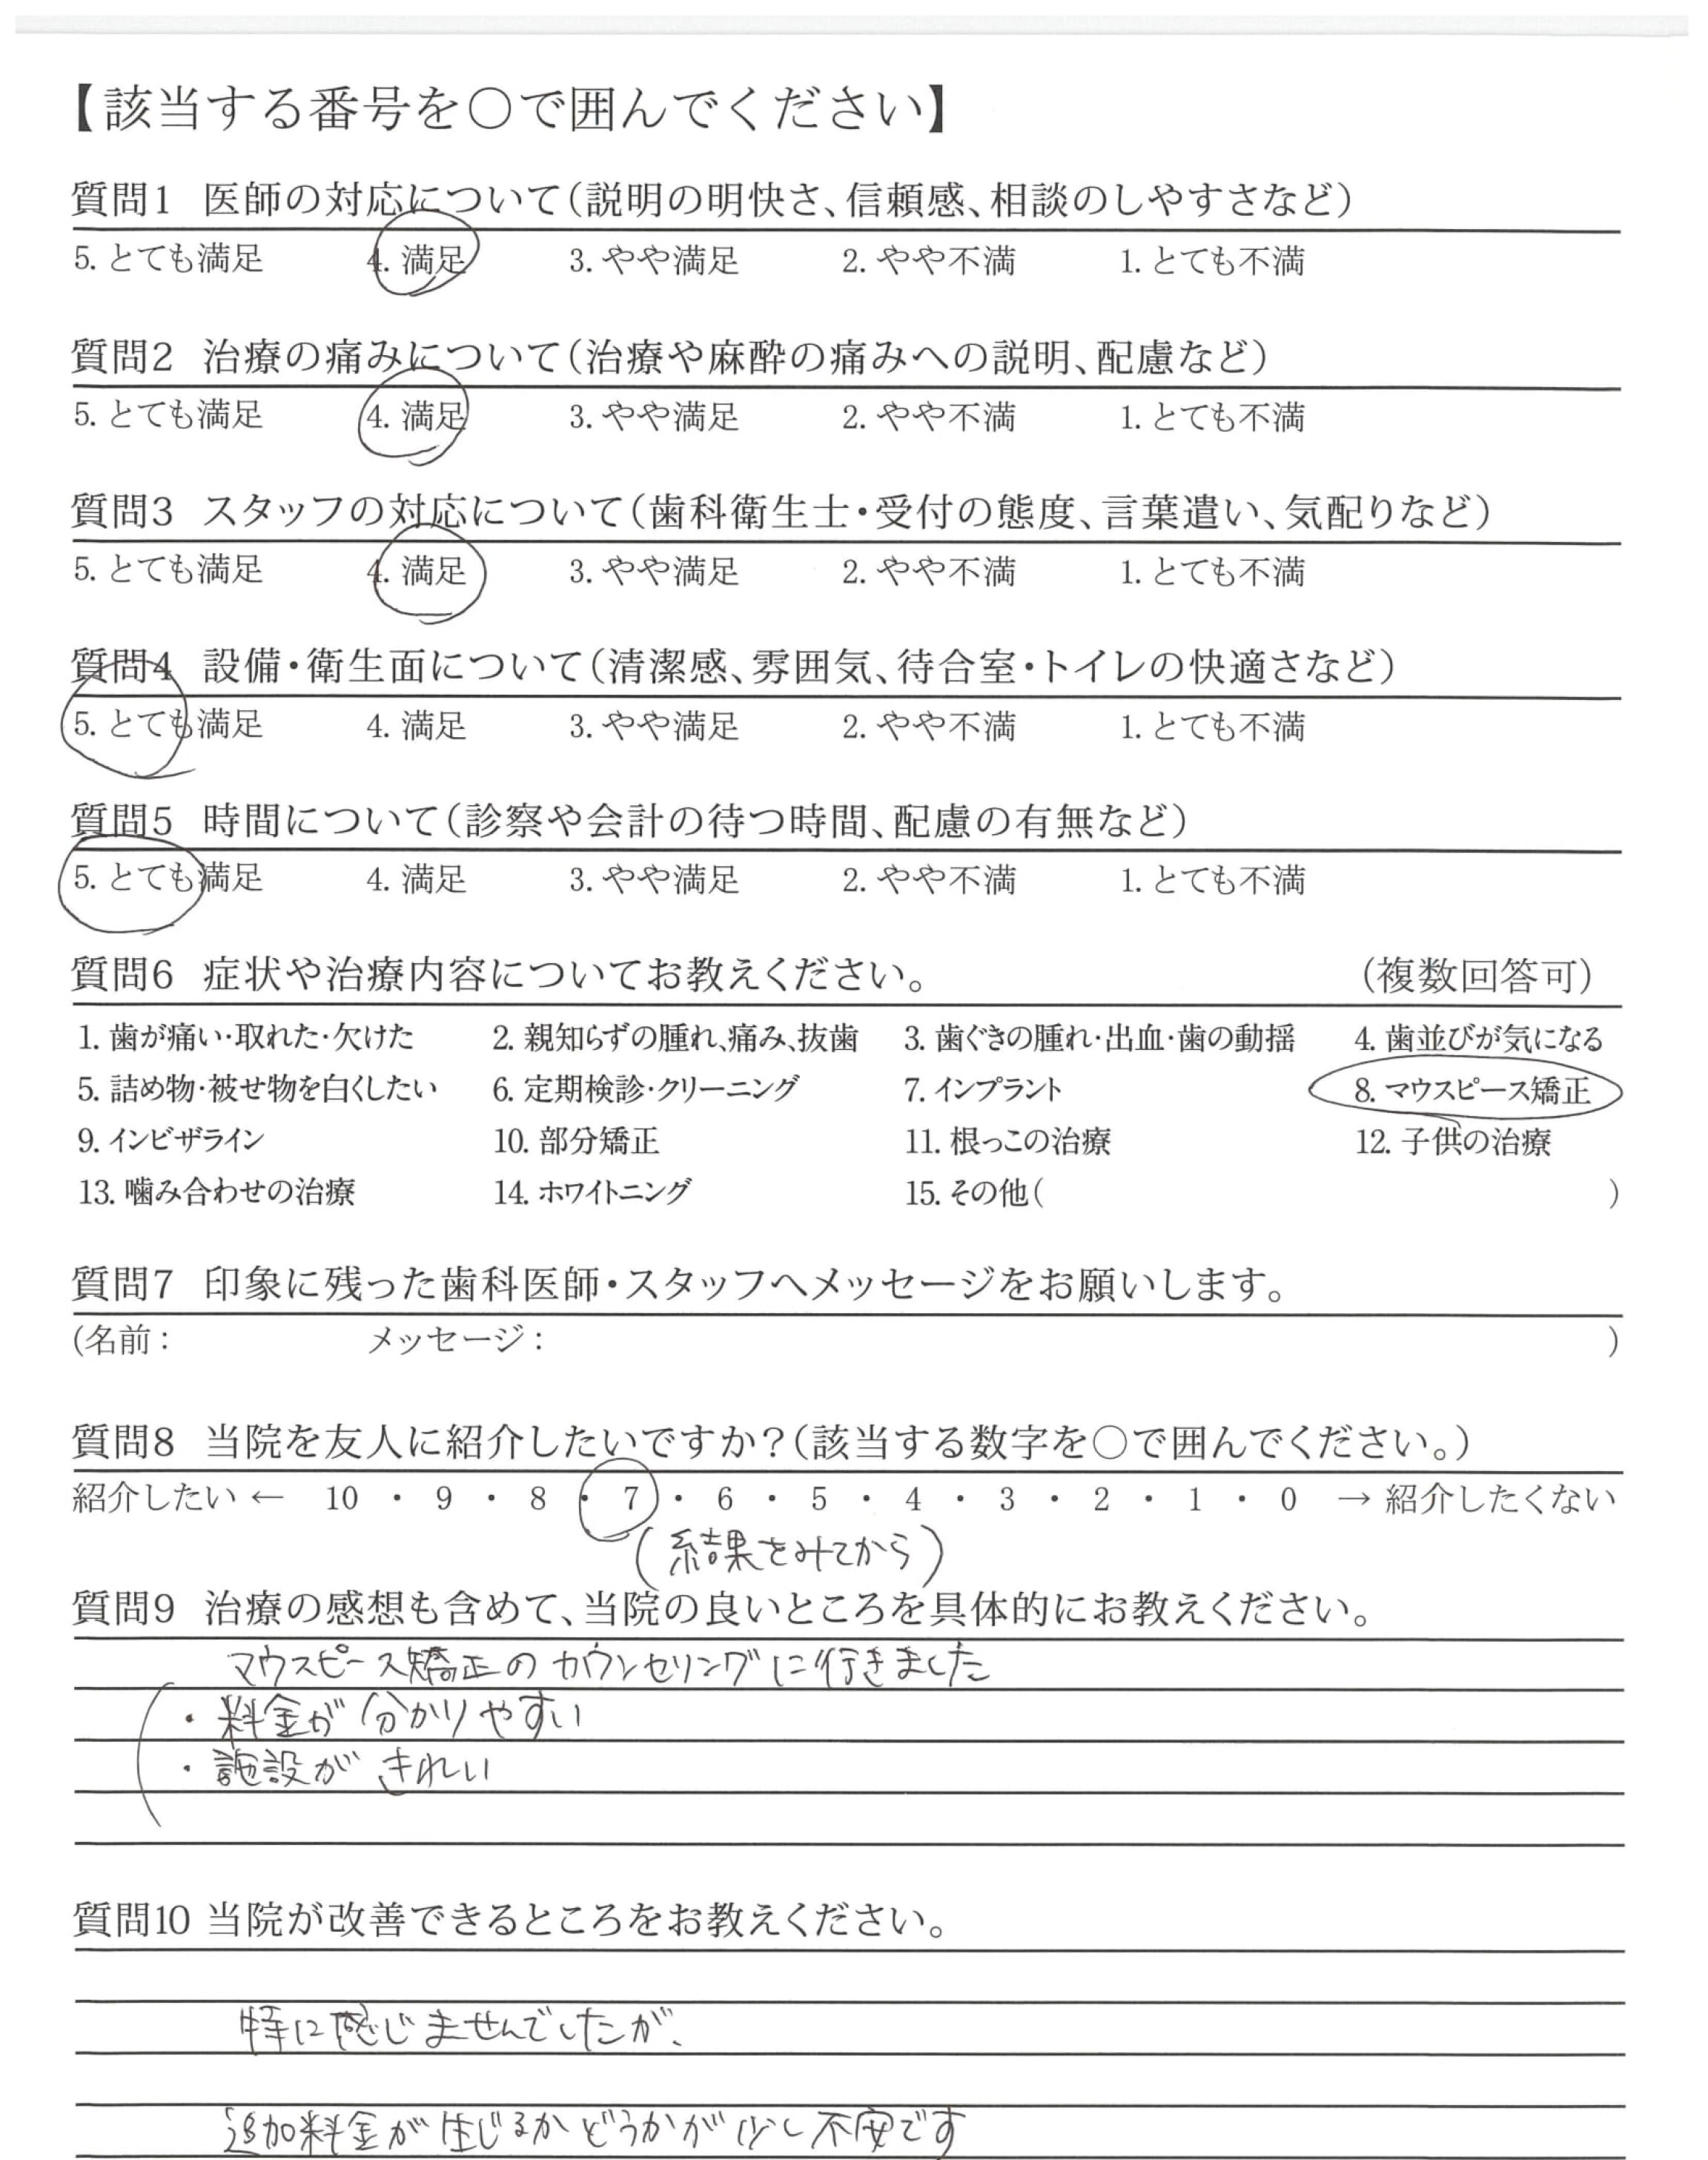 【該当する番号を○で囲んでください】
質問1 医師の対応について(説明の明快さ、信頼感、相談のしやすさなど)
5. とても満足 4. 満足 3. やや満足 2. やや不満 1. とても不満
質問2 治療の痛みについて(治療や麻酔の痛みへの説明、配慮など)
5. とても満足 4. 満足 3. やや満足 2. やや不満 1. とても不満
質問3 スタッフの対応について(歯科衛生士・受付の態度、言葉遣い、気配りなど)
5. とても満足 4. 満足 3. やや満足 2. やや不満 1. とても不満
質問4 設備・衛生面について(清潔感、雰囲気、待合室・トイレの快適さなど)
5. とても満足 4. 満足 3. やや満足 2. やや不満 1. とても不満
質問5 時間について(診察や会計の待つ時間、配慮の有無など)
5. とても満足 4. 満足 3. やや満足 2. やや不満 1. とても不満
質問6 症状や治療内容についてお教えください。 (複数回答可)
1. 歯が痛い・取れた・欠けた 2. 親知らずの腫れ、痛み、抜歯 3. 歯ぐきの腫れ・出血・歯の動揺 4. 歯並びが気になる
5. 詰め物・被せ物を白くしたい 6. 定期検診・クリーニング 7. インプラント 8. マウスピース矯正
9. インビザライン 10. 部分矯正 11. 根っこの治療 12. 子供の治療
13. 噛み合わせの治療 14. ホワイトニング 15. その他( )
質問7 印象に残った歯科医師・スタッフへメッセージをお願いします。
(名前: メッセージ: )
質問8 当院を友人に紹介したいですか?(該当する数字を○で囲んでください。)
紹介したい ← 10 ・ 9 ・ 8 ・ 7 ・ 6 ・ 5 ・ 4 ・ 3 ・ 2 ・ 1 ・ 0 → 紹介したくない
(結果をみてから)
質問9 治療の感想も含めて、当院の良いところを具体的にお教えください。
マウスピース矯正のカウンセリングに行きました
・料金が分かりやすい
・施設がきれい
質問10 当院が改善できるところをお教えください。
特に感じませんでしたが、
追加料金が生じるかどうかが少し不安です